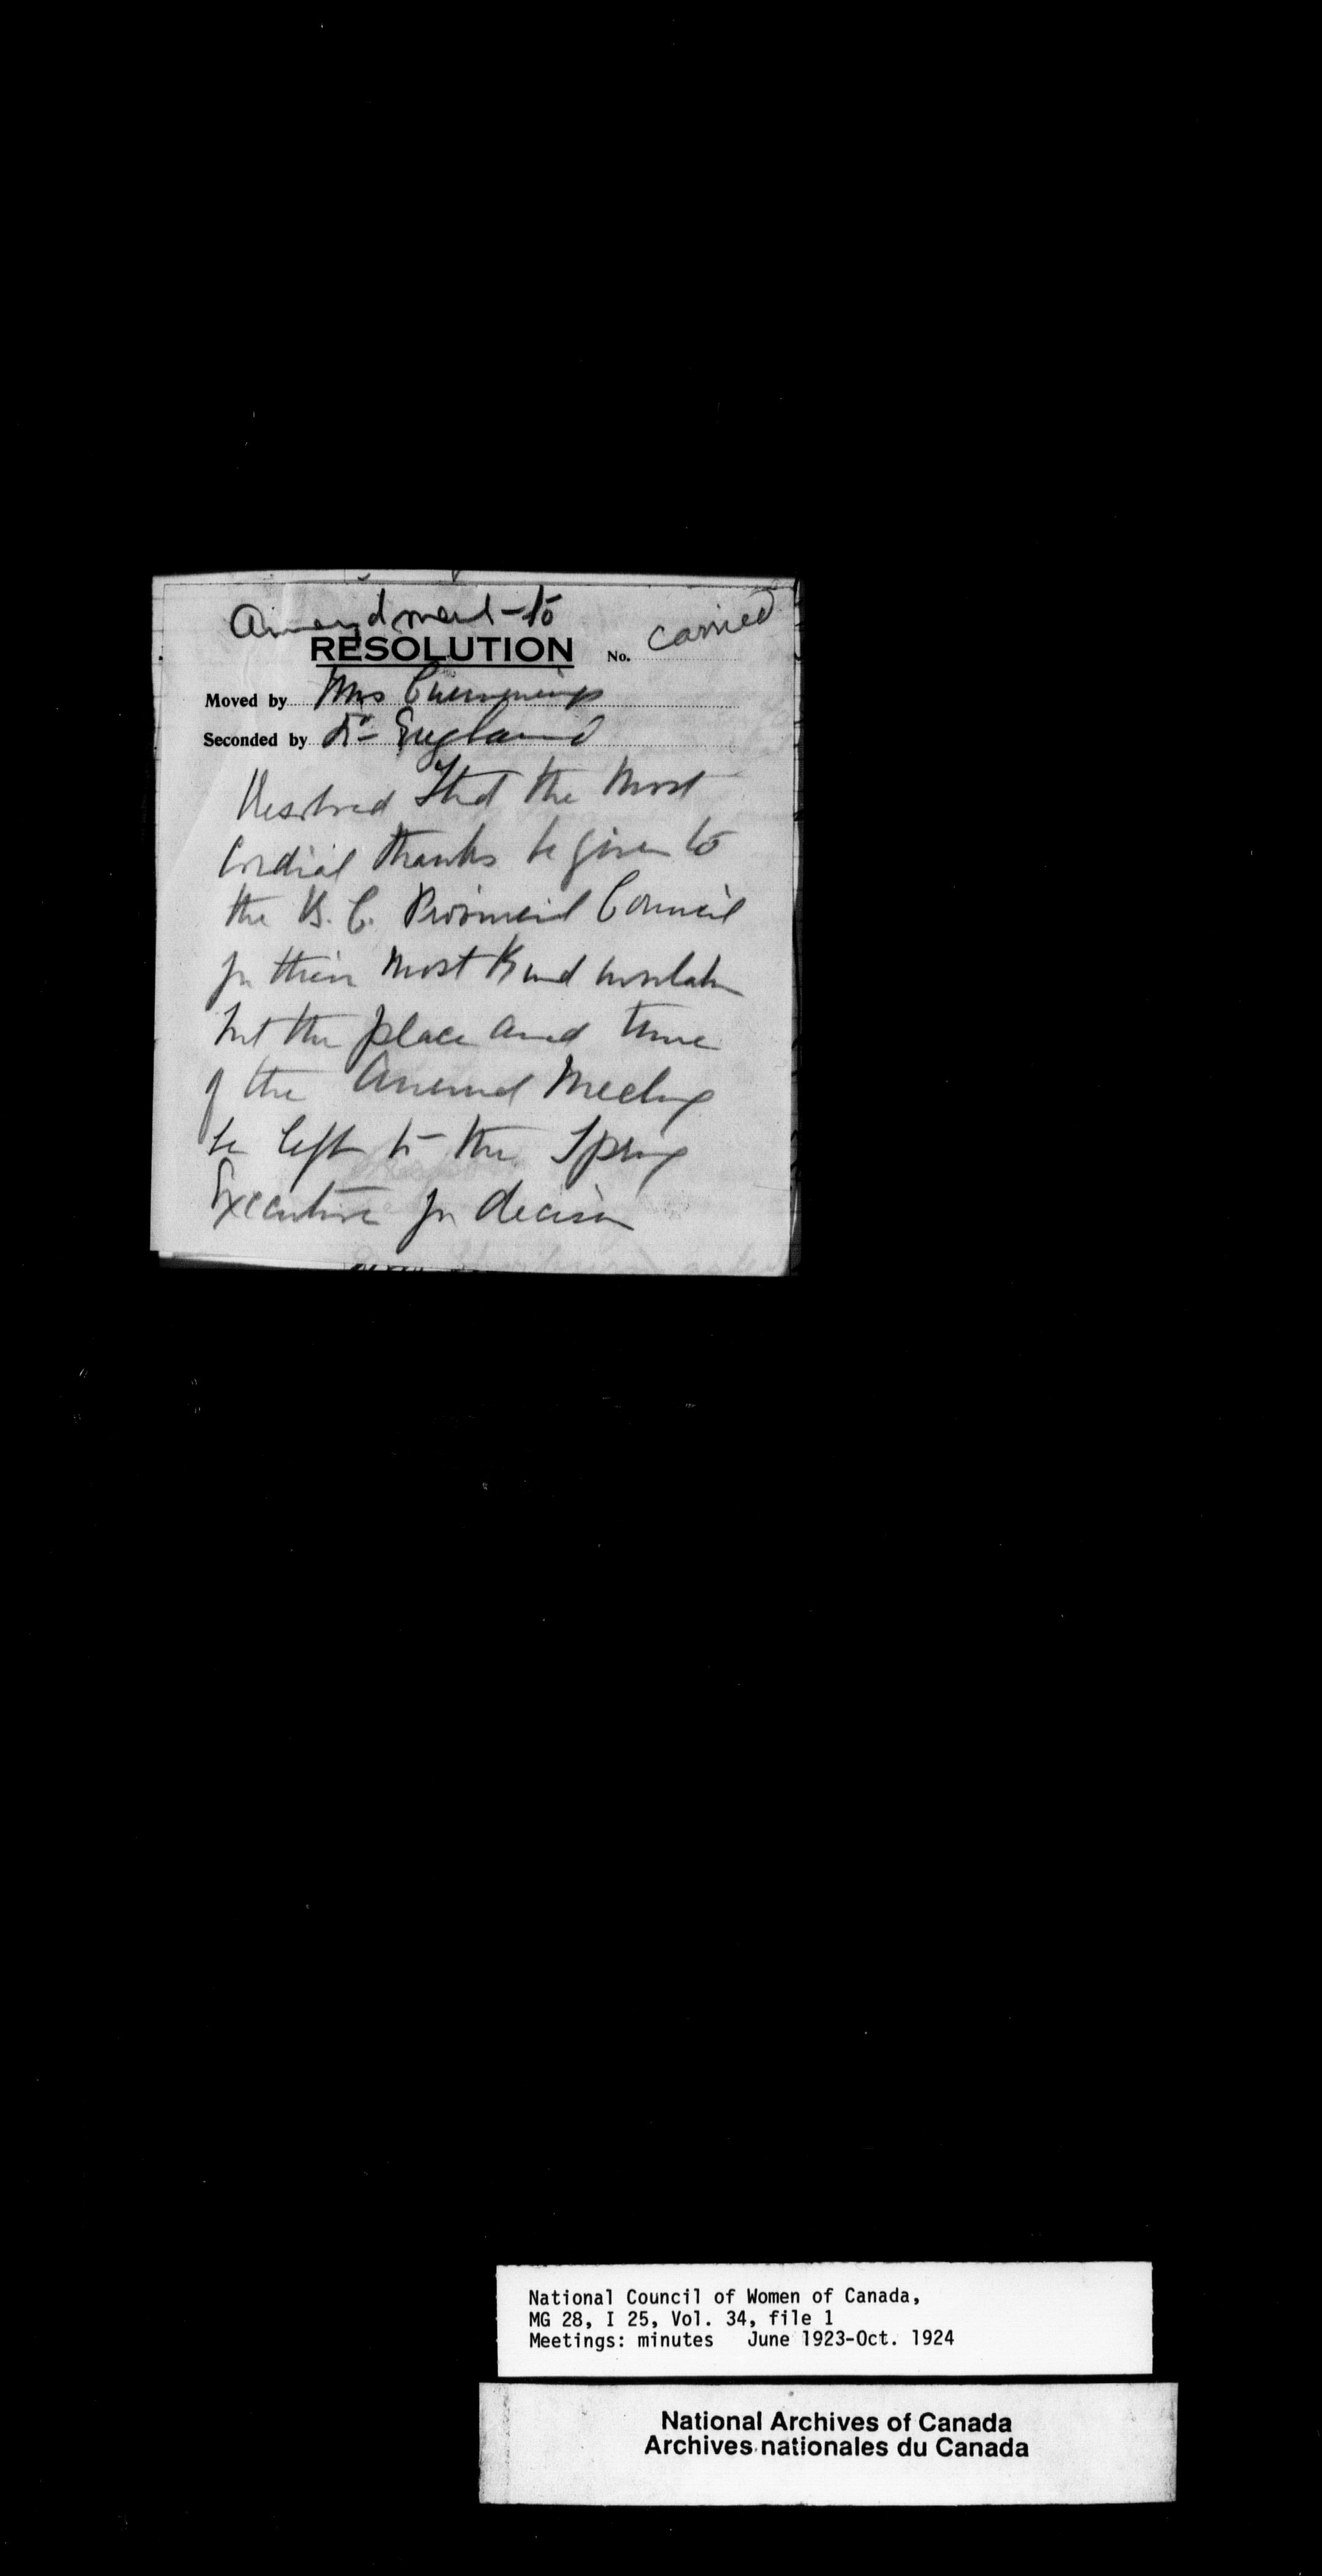 Amendment to
RESOLUTION No. carried
Moved by Mrs Cummings
Seconded by Dr England
Resolved That the most
Cordial thanks be given to
the B. C. Provincial Council
for their most kind invitation
but the place and time
of the Annual Meeting
be left to the Spring
Executive for decision
National Council of Women of Canada,
MG 28, I 25, Vol. 34, file 1
Meetings: minutes June 1923-Oct. 1924
National Archives of Canada
Archives nationales du Canada